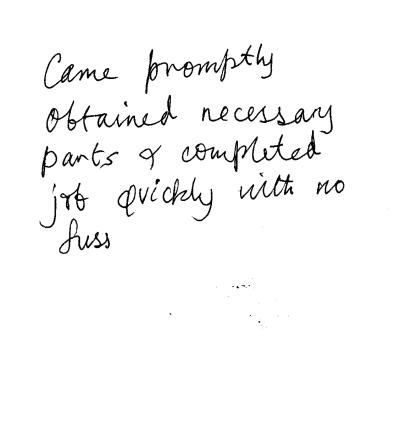 Came promptly
obtained necessary
parts & completed
job quickly with no
fuss